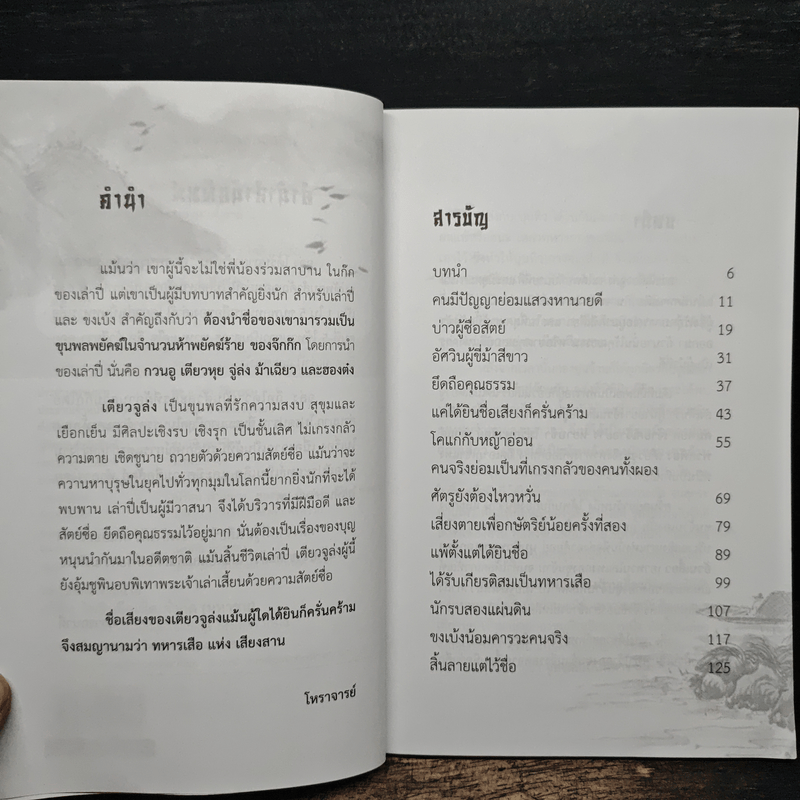 คำนำ
แม้นว่า เขาผู้นี้จะไม่ใช่พี่น้องร่วมสาบาน ในก๊ค
ของเล่าปี่ แต่เขาเป็นผู้มีบทบาทสำคัญยิ่งนัก สำหรับเล่าปี่
และ ขงเบ้ง สำคัญถึงกับว่า ต้องนำชื่อของเขามารวมเป็น
ขุนพลพยัคฆ์ในจำนวนห้าพยัคฆ์ร้าย ของจ๊กก๊ก โดยการนำ
ของเล่าปี่ นั่นคือ กวนอู เตียวหุย จูล่ง ม้าเฉียว และฮองต๋ง
เตียวจูล่ง เป็นขุนพลที่รักความสงบ สุขุมและ
เยือกเย็น มีศิลปะเชิงรบ เชิงรุก เป็นชั้นเลิศ ไม่เกรงกลัว
ความตาย เชิดชูนาย ถวายตัวด้วยความสัตย์ซื่อ แม้นว่าจะ
ควานหาบุรุษในยุคไปทั่วทุกมุมในโลกนี้ยากยิ่งนักที่จะได้
พบพาน เล่าปี่เป็นผู้มีวาสนา จึงได้บริวารที่มีฝีมือดี และ
สัตย์ซื่อ ยึดถือคุณธรรมไว้อยู่มาก นั่นต้องเป็นเรื่องของบุญ
หนุนนำกันมาในอดีตชาติ แม้นสิ้นชีวิตเล่าปี่ เตียวจูล่งผู้นี้
ยังอุ้มชูพินอบพิเทาพระเจ้าเล่าเสี้ยนด้วยความสัตย์ซื่อ
ชื่อเสียงของเตียวจูล่งแม้นผู้ใดได้ยินก็ครั่นคร้าม
จึงสมญานามว่า ทหารเสือ แห่ง เสียงสาน
โหราจารย์
สารบัญ
บทนำ 6
คนมีปัญญาย่อมแสวงหานายดี 11
บ่าวผู้ซื่อสัตย์ 19
อัศวินผู้ขี่ม้าสีขาว 31
ยึดถือคุณธรรม 37
แค่ได้ยินชื่อเสียงก็ครั่นคร้าม 43
โคแก่กับหญ้าอ่อน 55
คนจริงย่อมเป็นที่เกรงกลัวของคนทั้งผอง
ศัตรูยังต้องไหวหวั่น 69
เสี่ยงตายเพื่อกษัตริย์น้อยครั้งที่สอง 79
แพ้ตั้งแต่ได้ยินชื่อ 89
ได้รับเกียรติสมเป็นทหารเสือ 99
นักรบสองแผ่นดิน 107
ขงเบ้งน้อมคารวะคนจริง 117
สิ้นลายแต่ไว้ชื่อ 125